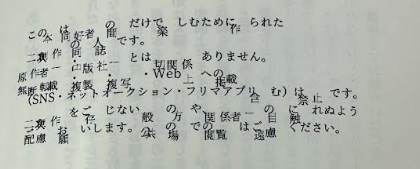 この本は同好者の間だけで楽しむために作られた
二次創作の同人誌です。
原作者・出版社とは一切関係ありません。
無断転載・複製・複写・Web上への掲載
(SNS・ネットオークション・フリマアプリ含む)は禁止です。
二次創作をご存じない一般の方や関係者の目に触れぬよう
配慮お願いします。公共の場での閲覧はご遠慮ください。